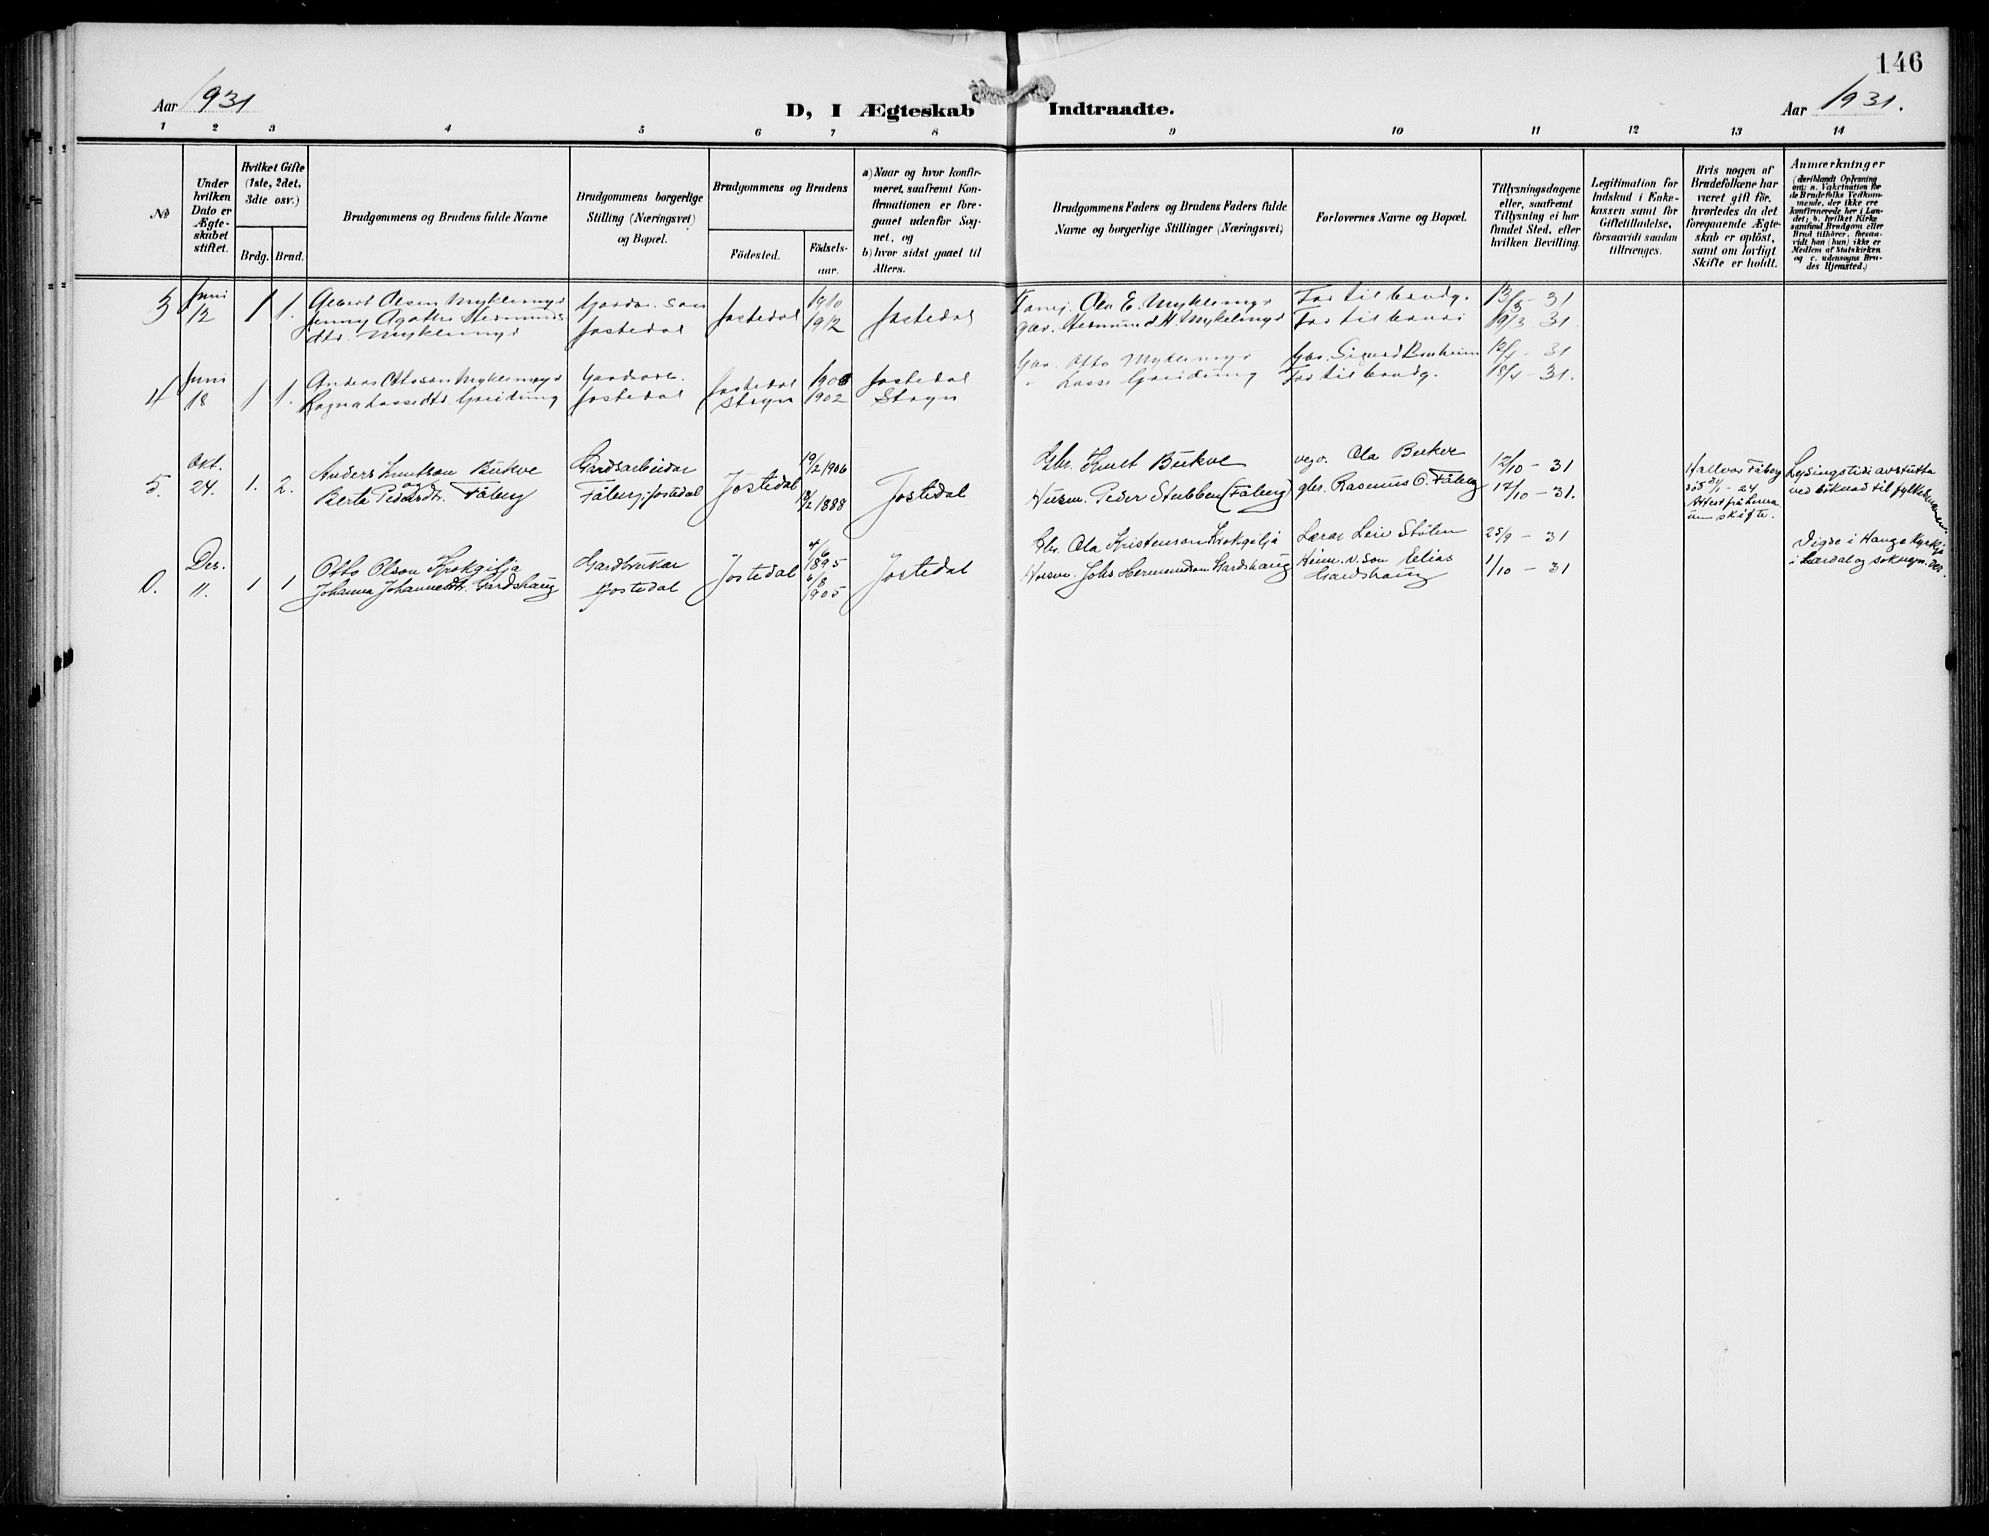 146
Aar 1931
D, I Ægteskab Indtraadte.
Aar 1931.
1 2 3 4 5 6 7 8 9 10 11 12 13 14
No
Under hvilken Dato er Ægteskabet stiftet.
Hvilket Gifte (1ste, 2det, 3die osv.)
Brdg. Brud.
Brudgommens og Brudens fulde Navne
Brudgommens borgerlige Stilling (Næringsvei) og Bopæl.
Brudgommens og Brudens
Födested. Födsels-aar.
a) Naar og hvor konfir-
meret, saafremt Kon-
firmationen er fore-
gaaet udenfor Sog-
net, og
b) hvor sidst gaaet til
Alters.
Brudgommens Faders og Brudens Faders fulde
Navne og borgerlige Stillinger (Næringsvei)
Forlovernes Navne og Bopæl.
Tillysningsdagene
eller, saafremt
Tillysning ei har
fundet Sted, efter
hvilken Bevilling.
Legitimation for
Indskud i Enke-
kassen samt for
Giftetilladelse,
forsaavidt saadan
tiltrænges.
Hvis nogen af
Brudefolkene har
været gift för,
hvorledes da det
foregaaende Ægte-
skab er oplöst,
samt om lovligt
Skifte er holdt.
Anmærkninger
(deriblandt Oplysning
om: a. Vakcination for
de Brudefolks Vedkom-
mende, der ikke ere
konfirmerede her i Lan-
det; b. hvilket Kirke
samfund Brudgom eller
Brud tilhörer, forsaa-
vidt han (hun) ikke er
Medlem af Statskirken
og c. udensogns Bru-
des Hjemsted.)
3 Juni 12 1 1. Albert Olsen Myklemyr
Jenny Agathe Hermunds
dtr. Myklemyr
Gardbr. son
Jostedal
Jostedal
1910
1912
Jostedal
Ola E. Myklemyr
Hermund H Myklemyr
Far til brudg.
Far til brudi
13/3 - 31
19/3 - 31.
4 Juni 18 1 1. Anders Ottoson Myklemyr
Ragna Lassedtr. Greidung
Jostedal
Jostedal
Stryn
1902
Jostedal
Stryn
Otto Myklemyr
" Lasse Greidung
Far til brudg.
- 31
18/4 - 31.
5. Okt. 24. 1. 2. Anders Knutson Bukve
og
Berte Pedersdtr. Fåberg
Gardsarbeidar
Fåberg, Jostedal
Jostedal
19/2 1906
18/2 1888
Jostedal
Gbr. Knut Bukve
Husm. Peder Stubben (Fåberg)
vegv. Ola Bukve
gbr. Rasmus O. Fåberg
12/10 - 31
17/10 - 31.
Hallvar Fåberg
- 24
Attest frå
um skifte.
Lysingstidi avstutta
ved söknad til fylkesmannen.
Des. 11. 1 1 Otto Olson Krokgilja
Johanna Johannesdtr. Gardshaug
Gardbrukar
Jostedal
Jostedal
4/6 1895
6/8 1905
Jostedal
Gbr. Ola Kristenson Krokgilja
Husm. Johs Hermundson Gardshaug
Lærar Leiv Stölen
Elias
Gardshaug
25/9 - 31
1/10 - 31
Vigde i Hauge kyrkje
i Lærdal og